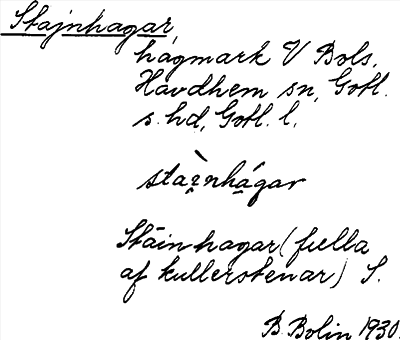 Stajnhagar,
hagmark V Bols,
Havdhem sn, Gotl.
s. hd, Gotl. l.
staı̯nhagar
Stäinhagar (fulla
af kullerstenar) S.
B. Bolin 1930.